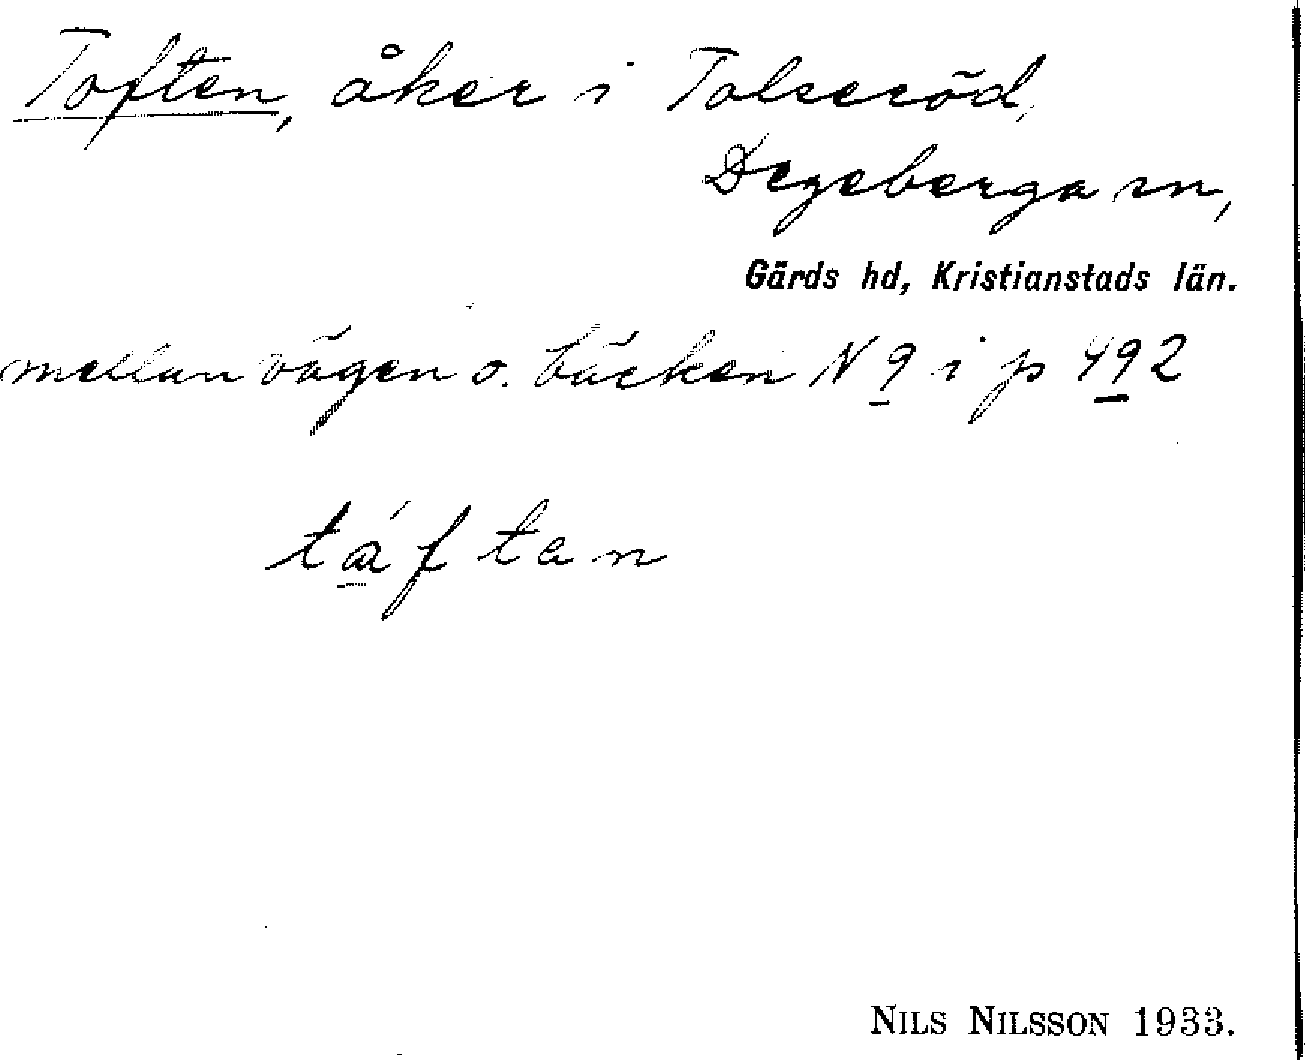 Toften, åker i Tolseröd,
Degeberga sn,
Gärds hd, Kristianstads län.
mellan vägen o. bäcken N 9 i p 492
táftan
NILS NILSSON 1933.